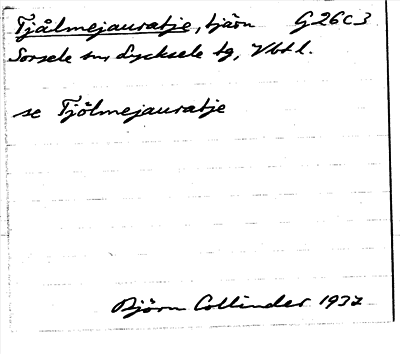 Tjålmejauratje, tjärn G26C3
Sorsele sn, Lycksele tg, Vbtl.
se Tjölmejauratje
Björn Collinder 1937